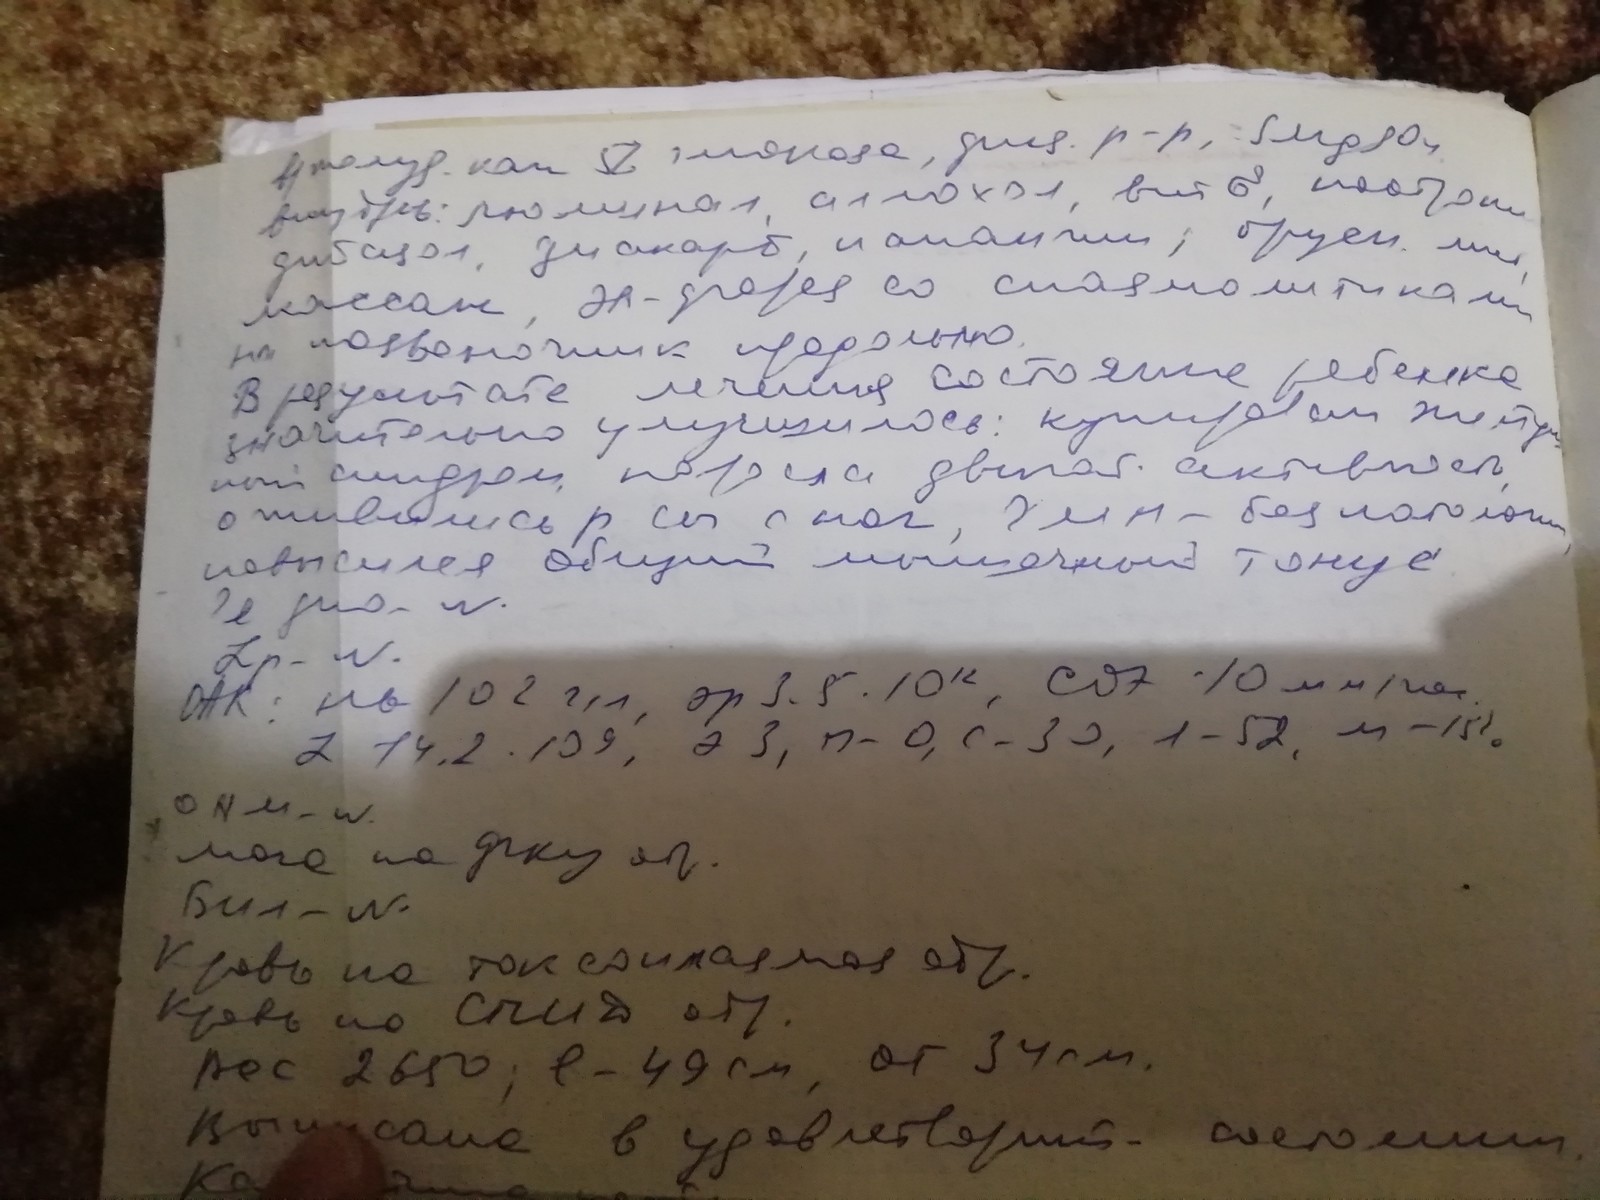 кап V глюкоза, физ. р-р, MgSO4
внутрь: люминал, аллохол, вит B6,
дибазол, диакарб, панангин;
массаж, эл-форез со спазмолитиками
на позвоночник продольно.
В результате лечения состояние ребенка
значительно улучшилось: купирован желтуш
ный синдром, двигат. активность,
оживились р сы с ног, ЧМН - без патологии,
повысился общий мышечный тонус
ОАК: Hb 102 г/л, эр 3.5 · 1012, СОЭ 10 мм/час.
L 14.2 · 109, э 3, п - 0, с - 30, л - 52, м - 15%
ОАМ - N.
моча на фку отр.
Бил - N.
Кровь на токсоплазмоз отр.
Кровь на СПИД отр.
Вес 2650; l - 49 см, ог 34 см.
Выписана в удовлетворит- состоянии.